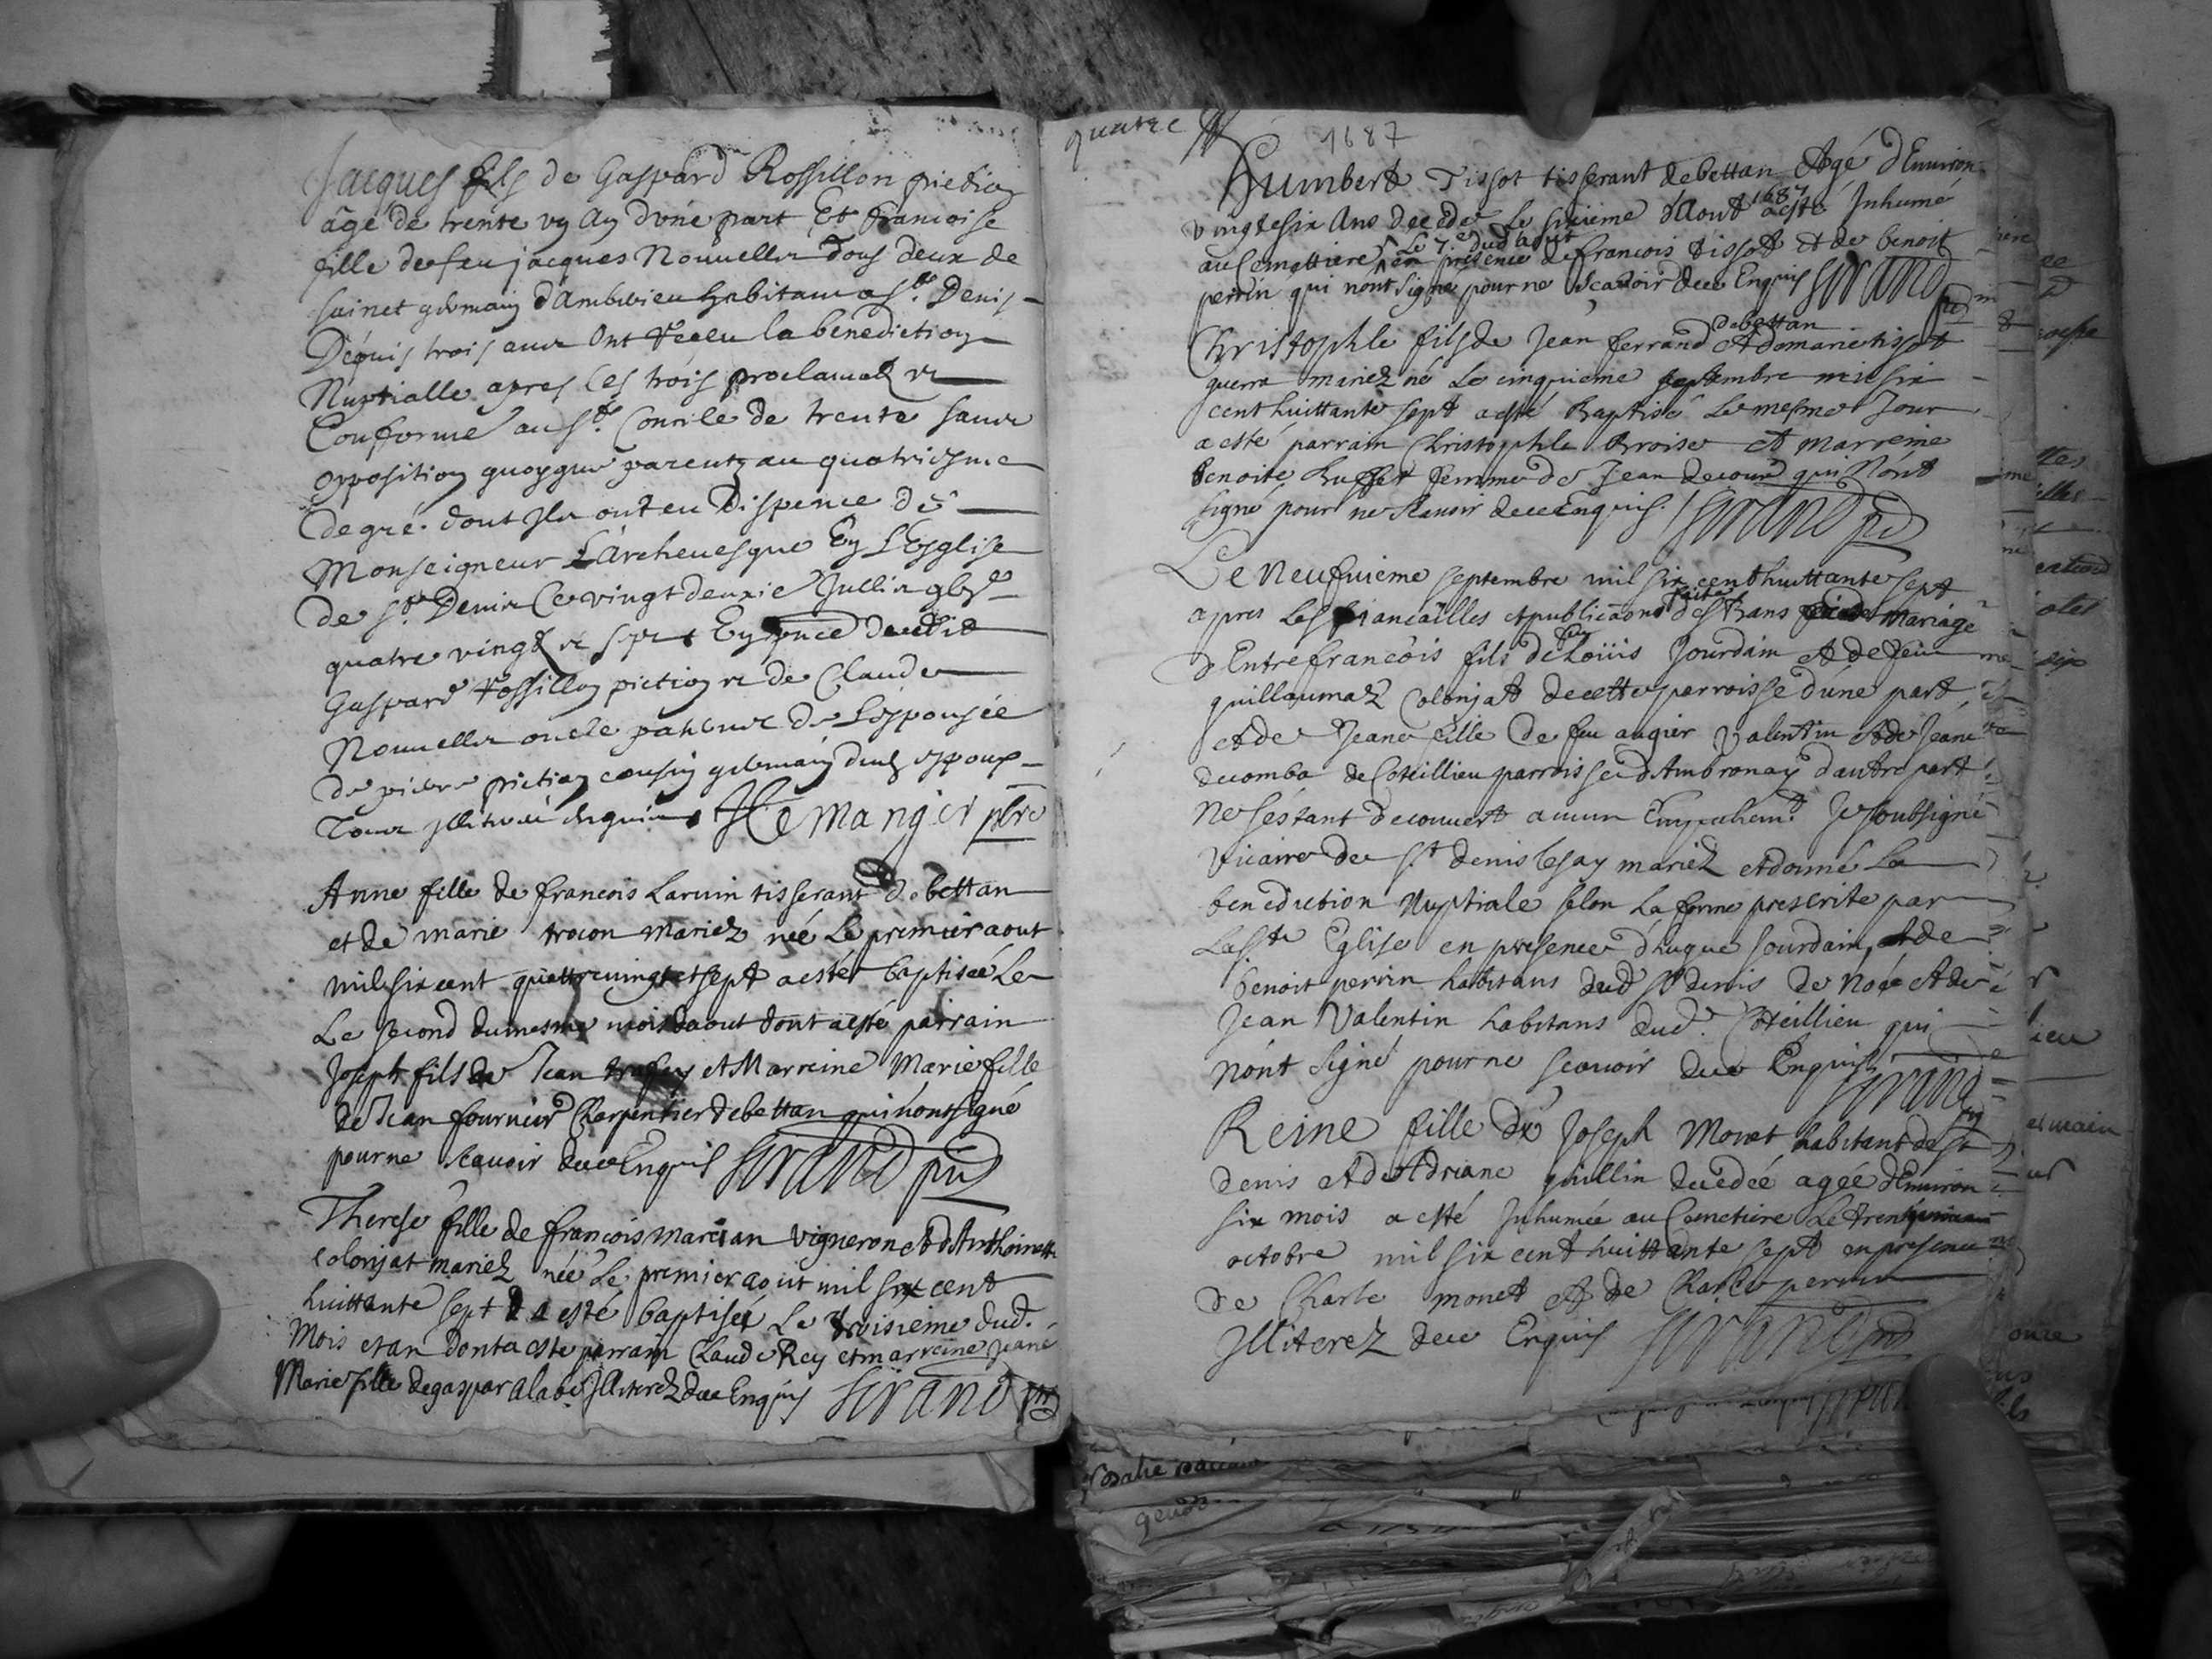 Jacques fils de Gaspard Rossillon piction
âgé de trente vn an dvne part Et francoise
fille de feu jacques Nouuelles tous deux de
sainct germain d'Ambrieu habitans a St. Denis
Dépuis trois ans Ont receu la benediction
Nuptialle apres les trois proclamãõns
Conforme au St. Concile de trente sans
opposition quoyque parentz au quatriesme
degré. dont Ils ont eu Dispence de
Monseigneur L'Archeuesque En L'Esglise
de St Denis Ce vingt deuxie Jullin
quatre vingt et sept En pñce dudit
Gaspard Rossillon piction et de Claude
Nouuelles oncle paternel de L'espousée
de pierre piction cousin germain dud espoux
Tous illiteré enquis Hemanger pbre
Anne fille de francois Laruin tisserant de bettan
et de marie trocon mariez née Le premier aout
mil six cent quattre uingt et sept a esté baptisée Le
Le second du mesme mois daout dont a esté parrain
Joseph fils de Jean et Marreine Marie fille
de Jean fournier Charpentier de bettan qui n'ont signé
pour ne scauoir de ce Enquis Girand
Therese fille de francois marcian vigneron Et d'Anthoinette
colonjat mariez née Le premier aout mil six cent
huittante sept a esté baptisée Le troisieme dud.
Mois et an dont a esté parrain Claude Rey et marreine Jeane
Marie fille de gaspar alabe Illiterez de ce Enquis Girand
quatre
1687
Humbert Tissot tisserant de bettan Agé d'Enuiron
vingt e six Ans decede Le sixieme d'Aout 1687 a esté Inhumé
au Cemettiere Le 7e dud aout en presence de francois tissot et de benoit
perrin qui n'ont signé pour ne scavoir de ce Enquis Girand
Christophle fils de Jean ferrand debettan Et de marie tissot
guerra mariez né Le cinquieme septembre mil six
cent huittante sept a esté Baptisé Le mesme Jour
a esté parrain Christophle Broise et marreine
benoite Buffet femme de Jean decour qui N'ont
signé pour ne scauoir de ce Enquis. Girand
Le Neufuieme septembre mil six cent huittante sept
apres Les fiancailles et publicãons faites des Bans de Mariage
d'Entre francois fils de feu Loüis Jourdain Et de feue
guillaumaz Colonjat de cette parroisse d'une part
et de Jeane fille de feu augier Valentin Et de Jeane
decomba de Coteillieu parroisse d'Ambronay d'autre part
ne s'éstant decouuert aucun Empechemt. Je soubsigné
vicaire de St denis les ay mariez et donné La
benediction Nuptiale selon La forme prescrite par
La Ste Eglise en presence d'hugue Jourdain, et de
benoit perrin habitans dud St denis de Et de
Jean Valentin habitans dud. Coteillieu qui
n'ont signé pour ne scauoir de ce Enquis Girand
Reine fille de Joseph Monet habitant de St
denis Et d'Adriane guillin decedeé ageé d'Enuiron
six mois a esté Inhumée au Cemetiere Le
octobre mil six cent huittante sept en presence
de Charle monet et de Charle perrin
Illiterez de ce Enquis Girand